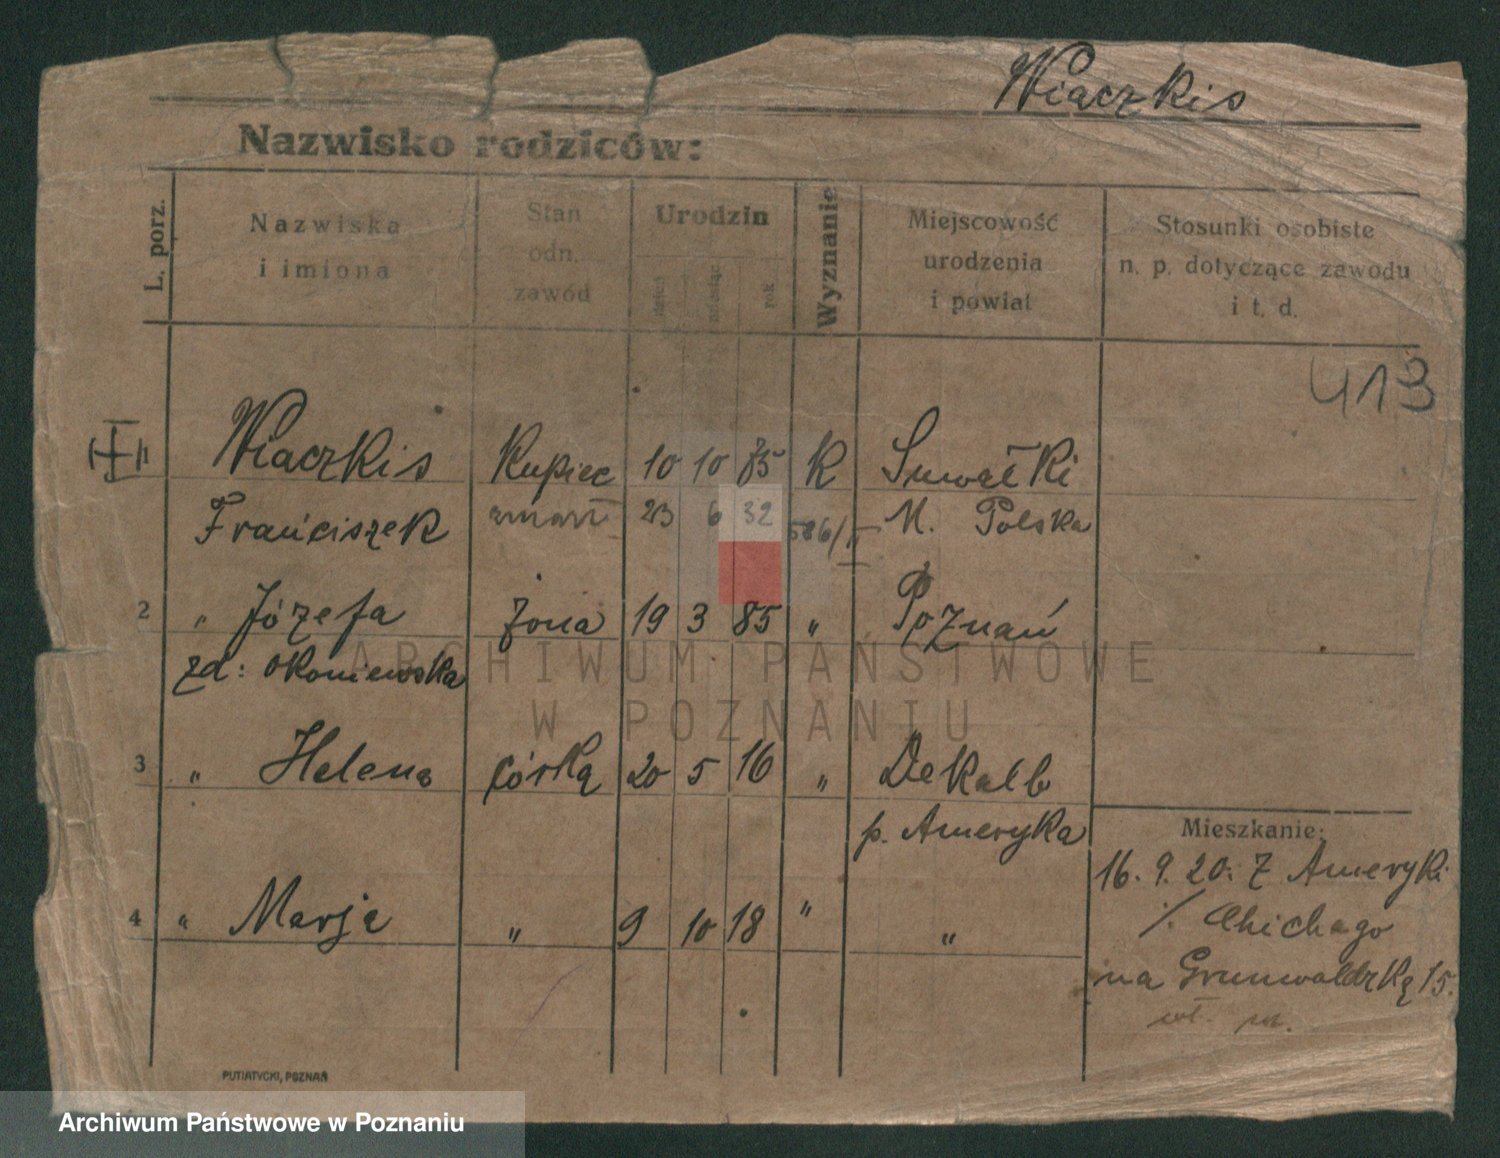 Wiaczkis
Nazwisko rodziców:
L. porz.
Nazwiska
i imiona
Stan
odn.
zawód
Urodzin
dzień
miesiąc
rok
Wyznanie
Miejscowość
urodzenia
i powiat
Stosunki osobiste
n. p. dotyczące zawodu
i t. d.
413
Wiaczkis Kupiec 10 10 85 K Suwałki
Franciszek zmarł 23 6 32 586/II M. Polska
2 " Józefa żona 19 3 85 " Poznań
zd: Okoniewska
3 " Helena córka 20 5 16 " DeKalb
p. Ameryka
4 " Marja " 9 10 18 " "
Mieszkanie:
16. 9. 20: Z Ameryki
Chichago
na Grunwaldzką 15.
PUTIATYCKI, POZNAŃ
ARCHIWUM PAŃSTWOWE
W POZNANIU
Archiwum Państwowe w Poznaniu